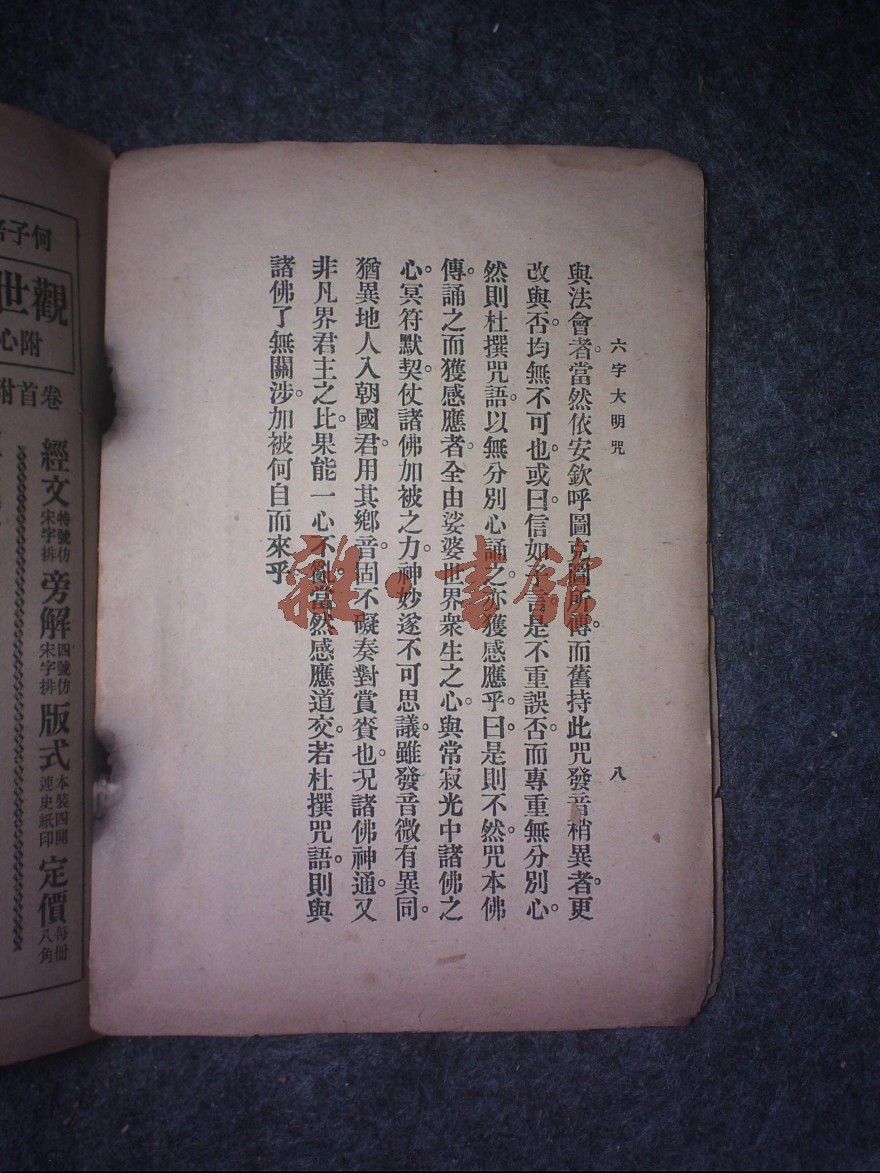 六字大明咒
八
與法會者。當然依安欽呼圖克圖所傳。而舊持此咒發音稍異者。更
改與否。均無不可也。或曰。信如子言。是不重誤否。而專重無分別心。
然則杜撰咒語。以無分別心誦之。亦獲感應乎。曰。是則不然。咒本佛
傳。誦之而獲感應者。全由娑婆世界衆生之心。與常寂光中諸佛之
心。冥符默契。仗諸佛加被之力。神妙遂不可思議。雖發音微有異同。
猶異地人入朝國君。用其鄉音。固不礙奏對賞賚也。況諸佛神通。又
非凡界君主之比。果能一心不亂。當然感應道交。若杜撰咒語。則與
諸佛了無關涉。加被何自而來乎。
雜·書館
何子
觀世
附心
卷首附
經文
特號仿
宋字排
旁解
四號仿
宋字排
版式
本裝四開
連史紙印
定價
每冊
八角